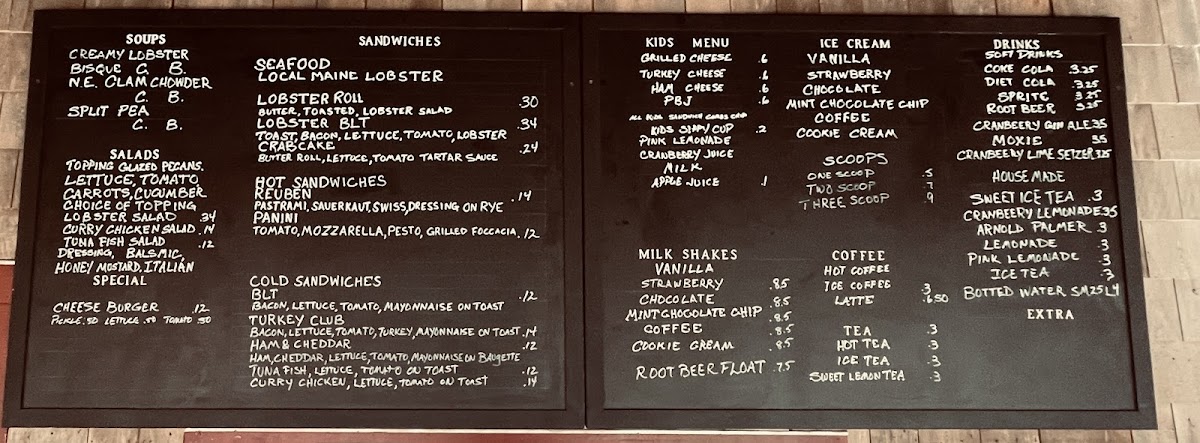 SOUPS
CREAMY LOBSTER
BISQUE C. B.
N.E. CLAM CHOWDER
C. B.
SPLIT PEA
C. B.
SALADS
TOPPING GLAZED PECANS.
LETTUCE, TOMATO
CARROTS, CUCUMBER
CHOICE OF TOPPING
LOBSTER SALAD .34
CURRY CHICKEN SALAD .14
TUNA FISH SALAD .12
DRESSING, BALSMIC,
HONEY MOSTARD, ITALIAN
SPECIAL
CHEESE BURGER .12
PICKLE .50 LETTUCE .50 TOMATO .50
SANDWICHES
SEAFOOD
LOCAL MAINE LOBSTER
LOBSTER ROLL .30
BUTTER, TOASTED, LOBSTER SALAD
LOBSTER BLT .34
TOAST, BACON, LETTUCE, TOMATO, LOBSTER
CRABCAKE .24
BUTTER ROLL, LETTUCE, TOMATO TARTAR SAUCE
HOT SANDWICHES
REUBEN .14
PASTRAMI, SAUERKAUT, SWISS, DRESSING ON RYE
PANINI
TOMATO, MOZZARELLA, PESTO, GRILLED FOCCACIA .12
COLD SANDWICHES
BLT .12
BACON, LETTUCE, TOMATO, MAYONNAISE ON TOAST
TURKEY CLUB
BACON, LETTUCE, TOMATO, TURKEY, MAYONNAISE ON TOAST .14
HAM & CHEDDAR .12
HAM, CHEDDAR, LETTUCE, TOMATO, MAYONNAISE ON BAUGETTE
TUNA FISH, LETTUCE, TOMATO ON TOAST .12
CURRY CHICKEN, LETTUCE, TOMATO ON TOAST .14
KIDS MENU
GRILLED CHEESE .6
TURKEY CHEESE .6
HAM CHEESE .6
PBJ .6
ALL KIDS SANDWICH
KIDS SIPPY CUP .2
PINK LEMONADE
CRANBERRY JUICE
MILK
APPLE JUICE .1
MILK SHAKES
VANILLA
STRAWBERRY .8.5
CHOCOLATE .8.5
MINT CHOCOLATE CHIP .8.5
COFFEE .8.5
COOKIE CREAM .8.5
ROOT BEER FLOAT .7.5
ICE CREAM
VANILLA
STRAWBERRY
CHOCOLATE
MINT CHOCOLATE CHIP
COFFEE
COOKIE CREAM
SCOOPS
ONE SCOOP .5
TWO SCOOP .7
THREE SCOOP .9
COFFEE
HOT COFFEE
ICE COFFEE .3
LATTE .6.50
TEA .3
HOT TEA .3
ICE TEA .3
SWEET LEMON TEA .3
DRINKS
SOFT DRINKS
COKE COLA .3.25
DIET COLA .3.25
SPRITE .3.25
ROOT BEER 3.25
CRANBEERY GIN ALE 3.5
MOXIE 3.5
CRANBEERY LIME SETZER 3.25
HOUSE MADE
SWEET ICE TEA .3
CRANBEERY LEMONADE 3.5
ARNOLD PALMER .3
LEMONADE .3
PINK LEMONADE .3
ICE TEA .3
BOTTED WATER SM 2.5 L 4
EXTRA